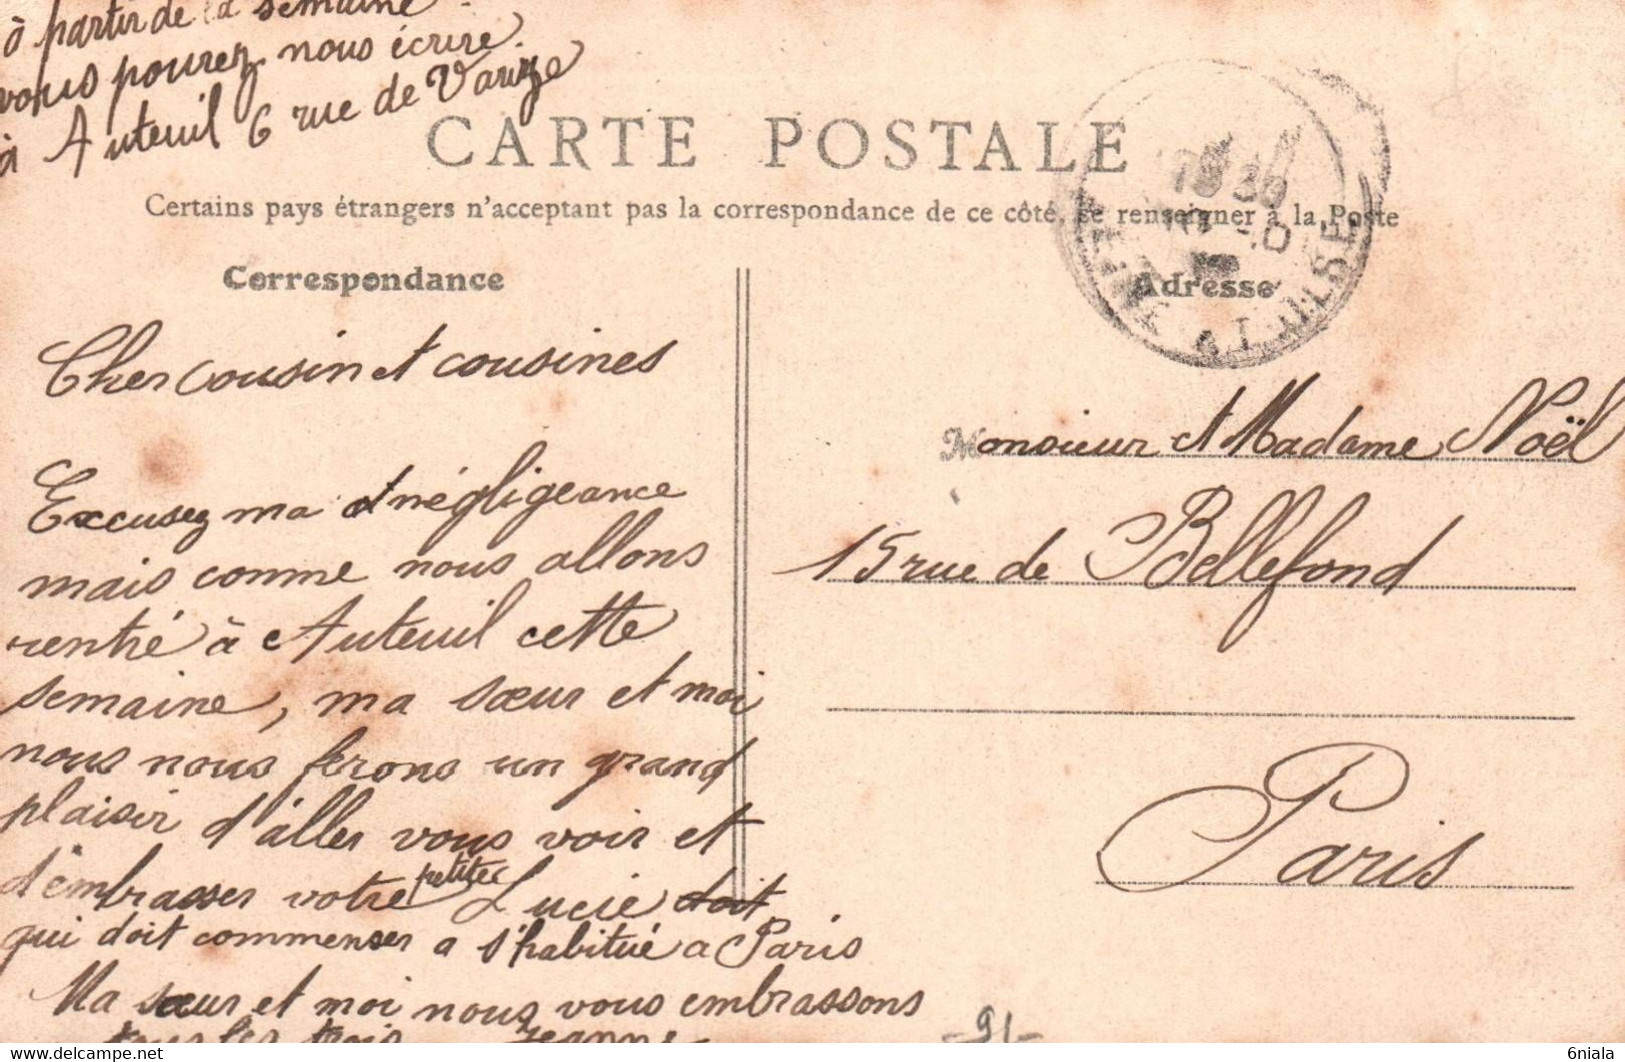 à partir de la semaine.
vous pourez nous écrire.
à Auteuil 6 rue de Varize
CARTE POSTALE
Certains pays étrangers n'acceptant pas la correspondance de ce côté, se renseigner à la Poste
Correspondance
Adresse
Cher cousin et cousines
Excusez ma négligeance
mais comme nous allons
rentré à Auteuil cette
semaine, ma sœur et moi
nous nous ferons un grand
plaisir d'aller vous voir et
d'embrasser votre petite Lucie doit
qui doit commenser a s'habitué a Paris
Ma sœur et moi nous vous embrassons
tous les trois Jeanne
Monsieur et Madame Noël
15 rue de Bellefond
Paris
SEINE & L'OISE
-91-
6niala